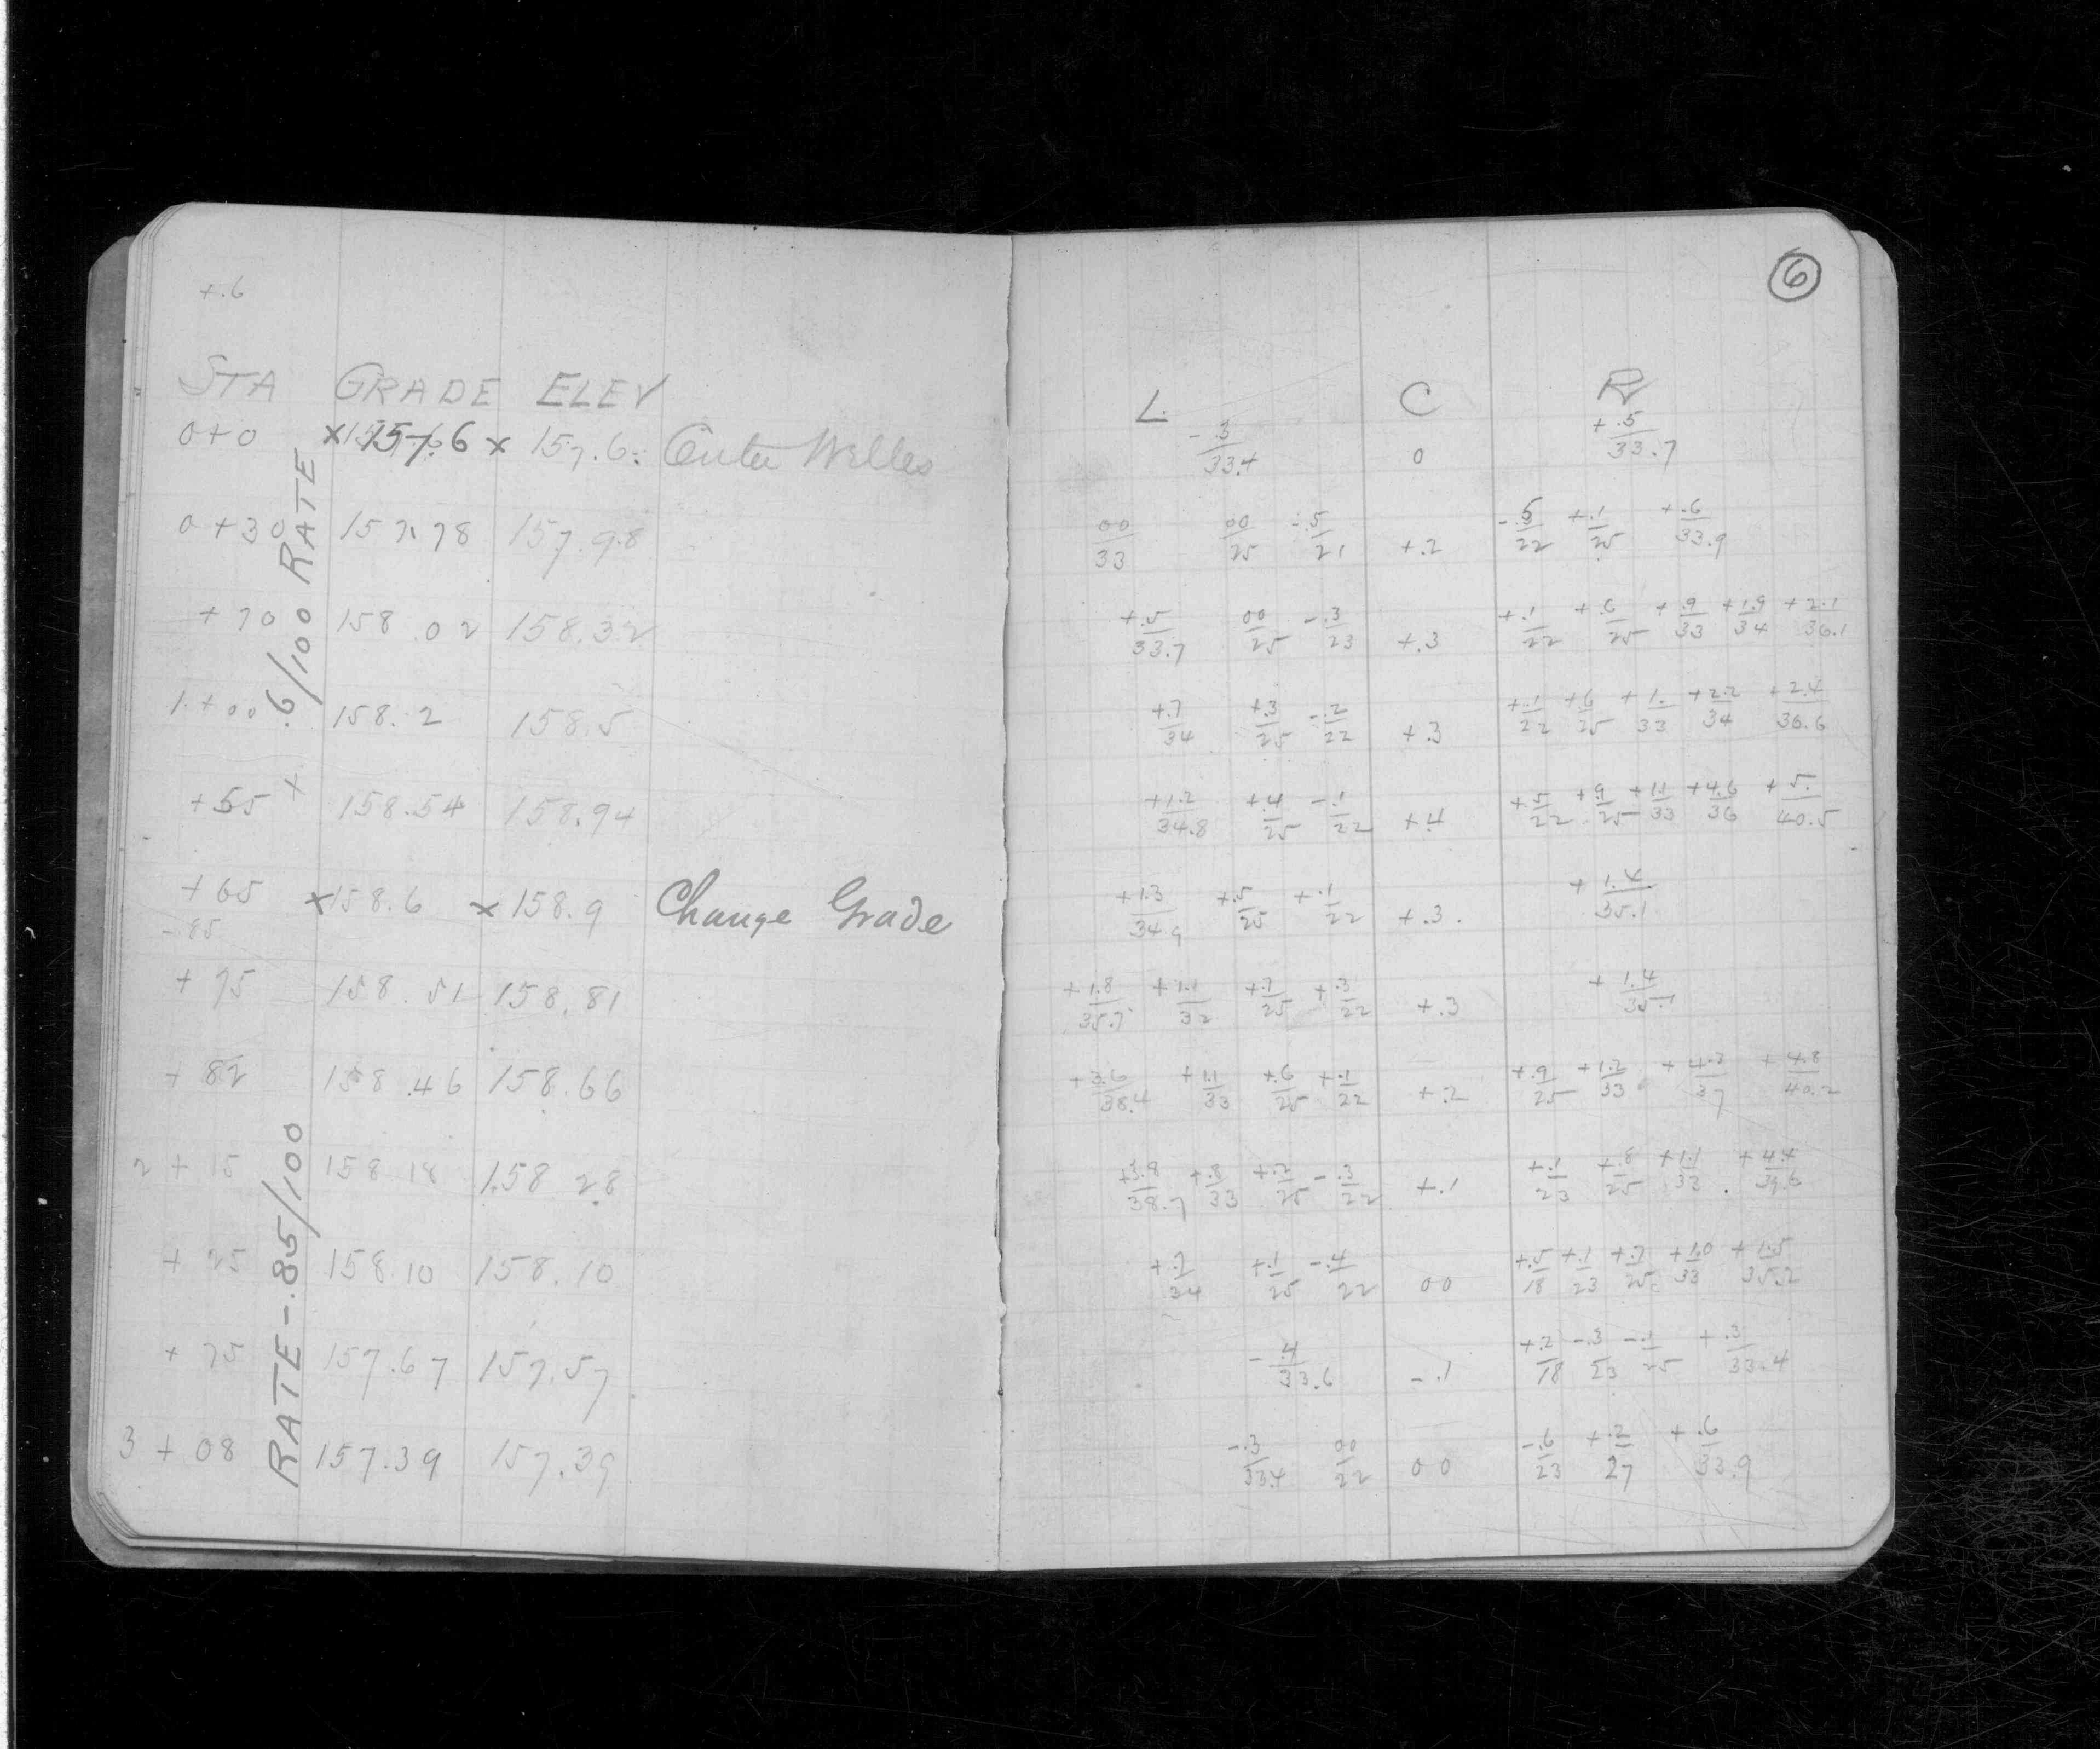 +.6
STA GRADE ELEV
0+0 ×157.6 × 157.6
0+30 157.78 157.98
+70 158.02 158.32
1+00 158.2 158.5
+55 158.54 158.94
+65 ×158.6 ×158.9 Change Grade
-.85
+75 158.51 158.81
+82 158.46 158.66
2+15 158.18 158.28
+25 158.10 158.10
+75 157.67 157.57
3+08 157.39 157.39
+ .6/100 RATE
RATE -.85/100
6
L C R
-.3/33.4 0 +.5/33.7
00/33 00/25 -.5/21 +.2 -.5/22 +.1/25 +.6/33.9
+.5/33.7 00/25 -.3/23 +.3 +.1/22 +.6/25 +.9/33 +1.9/34 +2.1/36.1
+.7/34 +.3/25 -.2/22 +.3 +.1/22 +.6/25 +1./33 +2.2/34 +2.4/36.6
+1.2/34.8 +.4/25 -.1/22 +.4 +.5/22 +.9/25 +1.1/33 +4.6/36 +5./40.5
+1.3/34.9 +.5/25 +.1/22 +.3 +1.4/35.1
+1.8/35.7 +1.1/32 +.7/25 +.3/22 +.3 +1.4/35.1
+3.6/38.4 +1.1/33 +.6/25 +.1/22 +.2 +.9/25 +1.2/33 +4.3/37 +4.8/40.2
+3.9/38.7 +.8/33 +.2/25 -.3/22 +.1 +.1/23 +.8/25 +1.1/33 +4.4/39.6
+.7/34 +.1/25 -.4/22 00 +.5/18 +.1/23 +.7/25 +1.0/33 +1.5/35.2
-.4/33.6 -.1 +.2/18 -.3/23 -.1/25 +.3/33.4
-.3/33.4 00/22 00 -.6/23 +.2/27 +.6/33.9